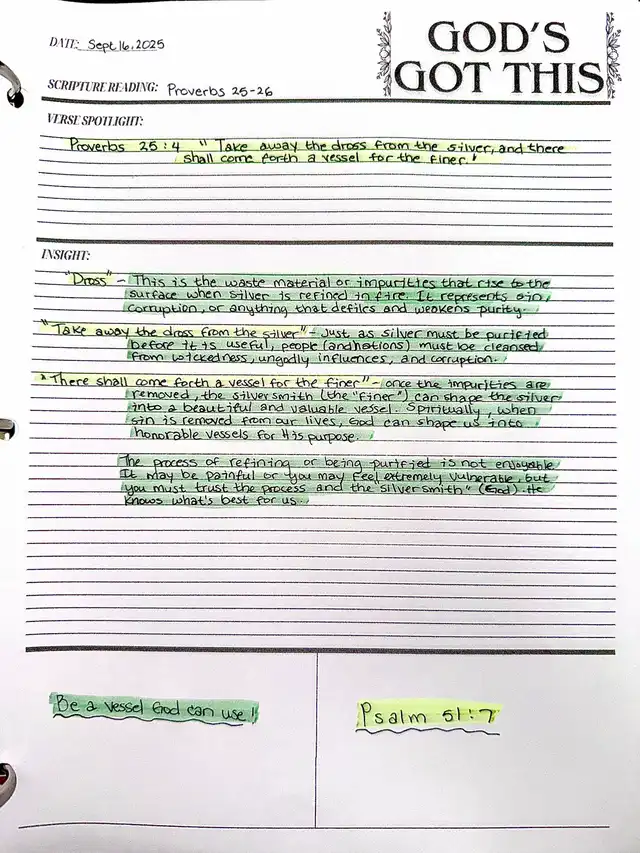 GOD'S
GOT THIS
DATE: Sept. 16, 2025
SCRIPTURE READING: Proverbs 25-26
VERSE SPOTLIGHT:
Proverbs 25:4 "Take away the dross from the silver, and there
shall come forth a vessel for the finer."
INSIGHT:
"Dross" - This is the waste material or impurities that rise to the
surface when silver is refined in fire. It represents sin,
corruption, or anything that defiles and weakens purity.
"Take away the dross from the silver" - Just as silver must be purified
before it is useful, people (and nations) must be cleansed
from wickedness, ungodly influences, and corruption.
"There shall come forth a vessel for the finer" - once the impurities are
removed, the silversmith (the "finer") can shape the silver
into a beautiful and valuable vessel. Spiritually, when
sin is removed from our lives, God can shape us into
honorable vessels for His purpose.
The process of refining or being purified is not enjoyable.
It may be painful or you may feel extremely vulnerable, but
you must trust the process and the "silversmith" (God). He
knows what's best for us.
Be a vessel God can use!
Psalm 51:7